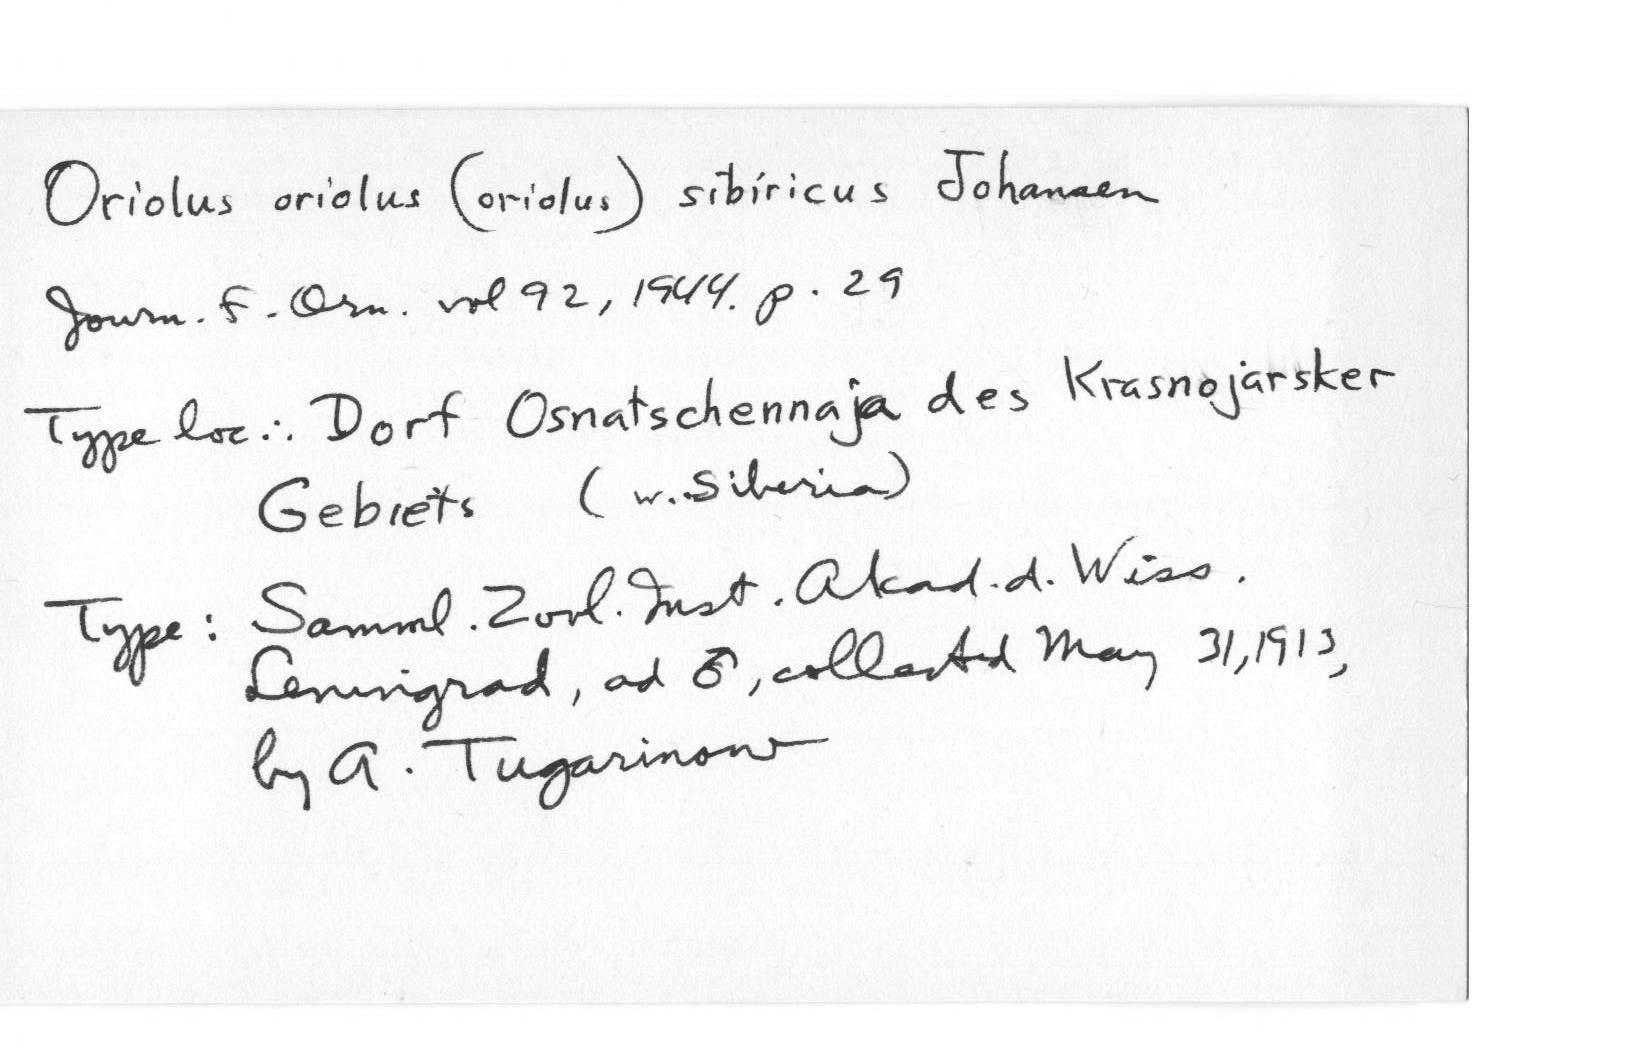 Oriolus oriolus (oriolus) sibiricus Johansen
Journ. f. Orn. vol 92, 1944. p. 29
Type loc.: Dorf Osnatschennaja des Krasnojarsker
Gebiets (w. Siberia)
Type: Samml. Zool. Inst. Akad. d. Wiss.
Leningrad, ad ♂, collected May 31, 1913,
by A. Tugarinow